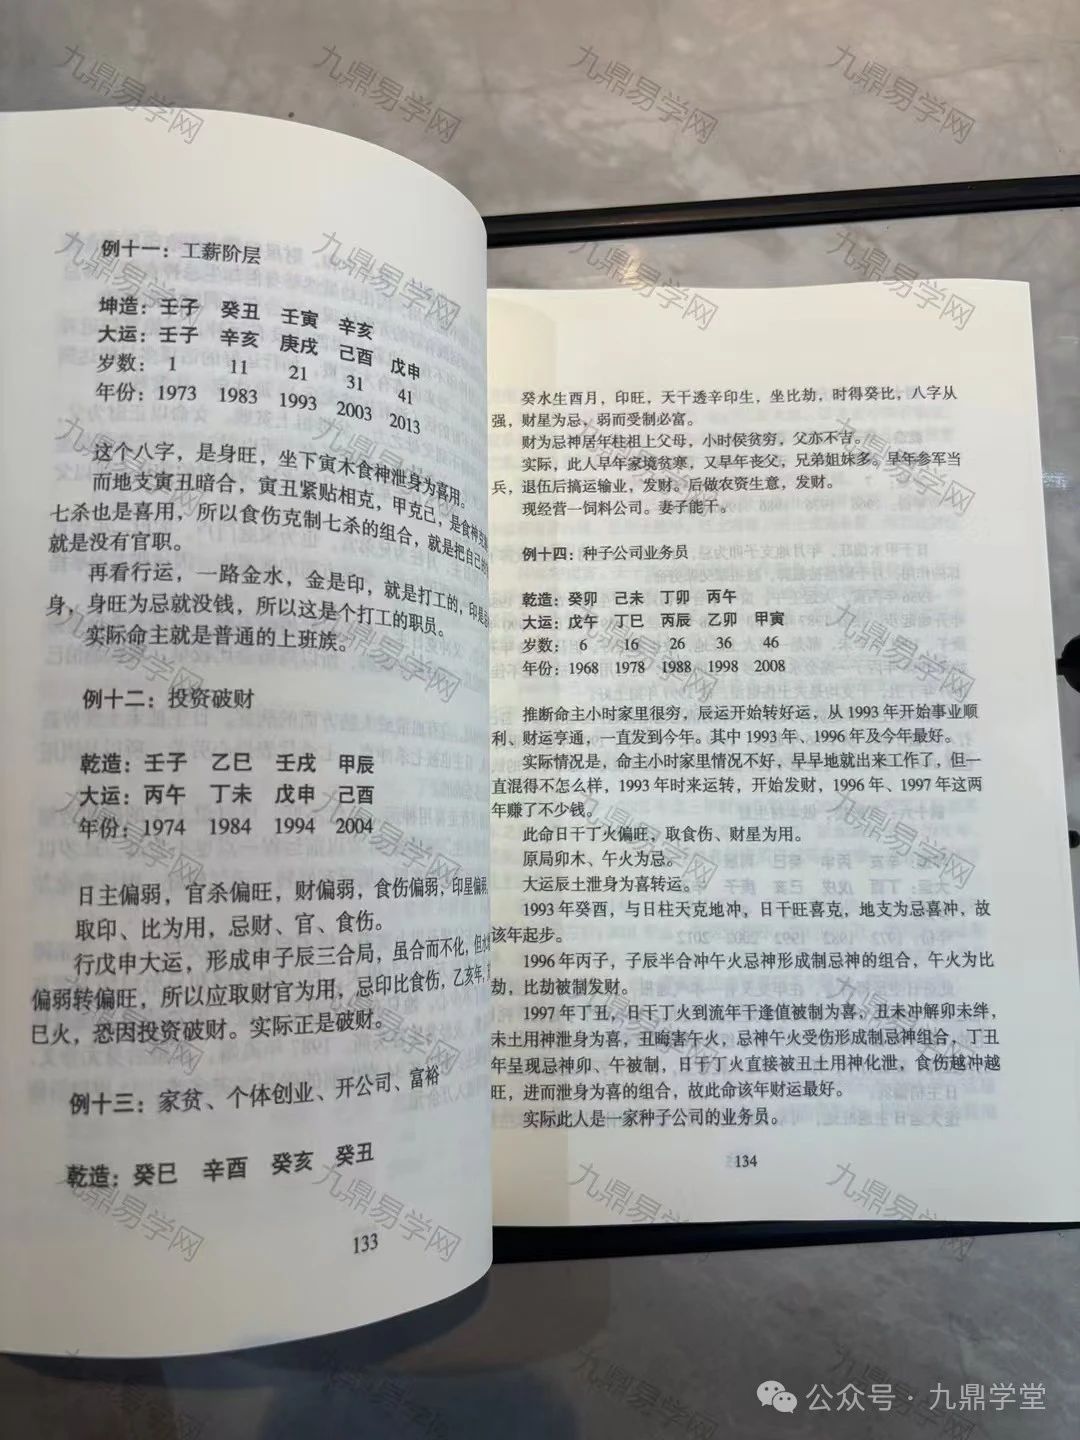 例十一：工薪阶层
坤造：壬子 癸丑 壬寅 辛亥
大运：壬子 辛亥 庚戌 己酉 戊申
岁数： 1 11 21 31 41
年份：1973 1983 1993 2003 2013
这个八字，是身旺，坐下寅木食神泄身为喜用。
而地支寅丑暗合，寅丑紧贴相克，甲克己，是食神
七杀也是喜用，所以食伤克制七杀的组合，就是把自己的
就是没有官职。
再看行运，一路金水，金是印，就是打工的，印是
身，身旺为忌就没钱，所以这是个打工的职员。
实际命主就是普通的上班族。
例十二：投资破财
乾造：壬子 乙巳 壬戌 甲辰
大运：丙午 丁未 戊申 己酉
年份：1974 1984 1994 2004
日主偏弱，官杀偏旺，财偏弱，食伤偏弱，印星偏弱
取印、比为用，忌财、官、食伤。
行戊申大运，形成申子辰三合局，虽合而不化，但
偏弱转偏旺，所以应取财官为用，忌印比食伤，乙亥年，
巳火，恐因投资破财。实际正是破财。
例十三：家贫、个体创业、开公司、富裕
乾造：癸巳 辛酉 癸亥 癸丑
133
癸水生酉月，印旺，天干透辛印生，坐比劫，时得癸比，八字从
强，财星为忌，弱而受制必富。
财为忌神居年柱祖上父母，小时侯贫穷，父亦不吉。
实际，此人早年家境贫寒，又早年丧父，兄弟姐妹多。早年参军当
兵，退伍后搞运输业，发财。后做农资生意，发财。
现经营一饲料公司。妻子能干。
例十四：种子公司业务员
乾造：癸卯 己未 丁卯 丙午
大运：戊午 丁巳 丙辰 乙卯 甲寅
岁数： 6 16 26 36 46
年份：1968 1978 1988 1998 2008
推断命主小时家里很穷，辰运开始转好运，从1993年开始事业顺
利、财运亨通，一直发到今年。其中1993年、1996年及今年最好。
实际情况是，命主小时家里情况不好，早早地就出来工作了，但一
直混得不怎么样，1993年时来运转，开始发财，1996年、1997年这两
年赚了不少钱。
此命日干丁火偏旺，取食伤、财星为用。
原局卯木、午火为忌。
大运辰土泄身为喜转运。
1993年癸酉，与日柱天克地冲，日干旺喜克，地支为忌喜冲，故
该年起步。
1996年丙子，子辰半合冲午火忌神形成制忌神的组合，午火为比
劫，比劫被制发财。
1997年丁丑，日干丁火到流年干逢值被制为喜，丑未冲解卯未绊，
未土用神泄身为喜，丑晦害午火，忌神午火受伤形成制忌神组合，丁丑
年呈现忌神卯、午被制，日干丁火直接被丑土用神化泄，食伤越冲越
旺，进而泄身为喜的组合，故此命该年财运最好。
实际此人是一家种子公司的业务员。
134
九鼎易学网
公众号·九鼎学堂